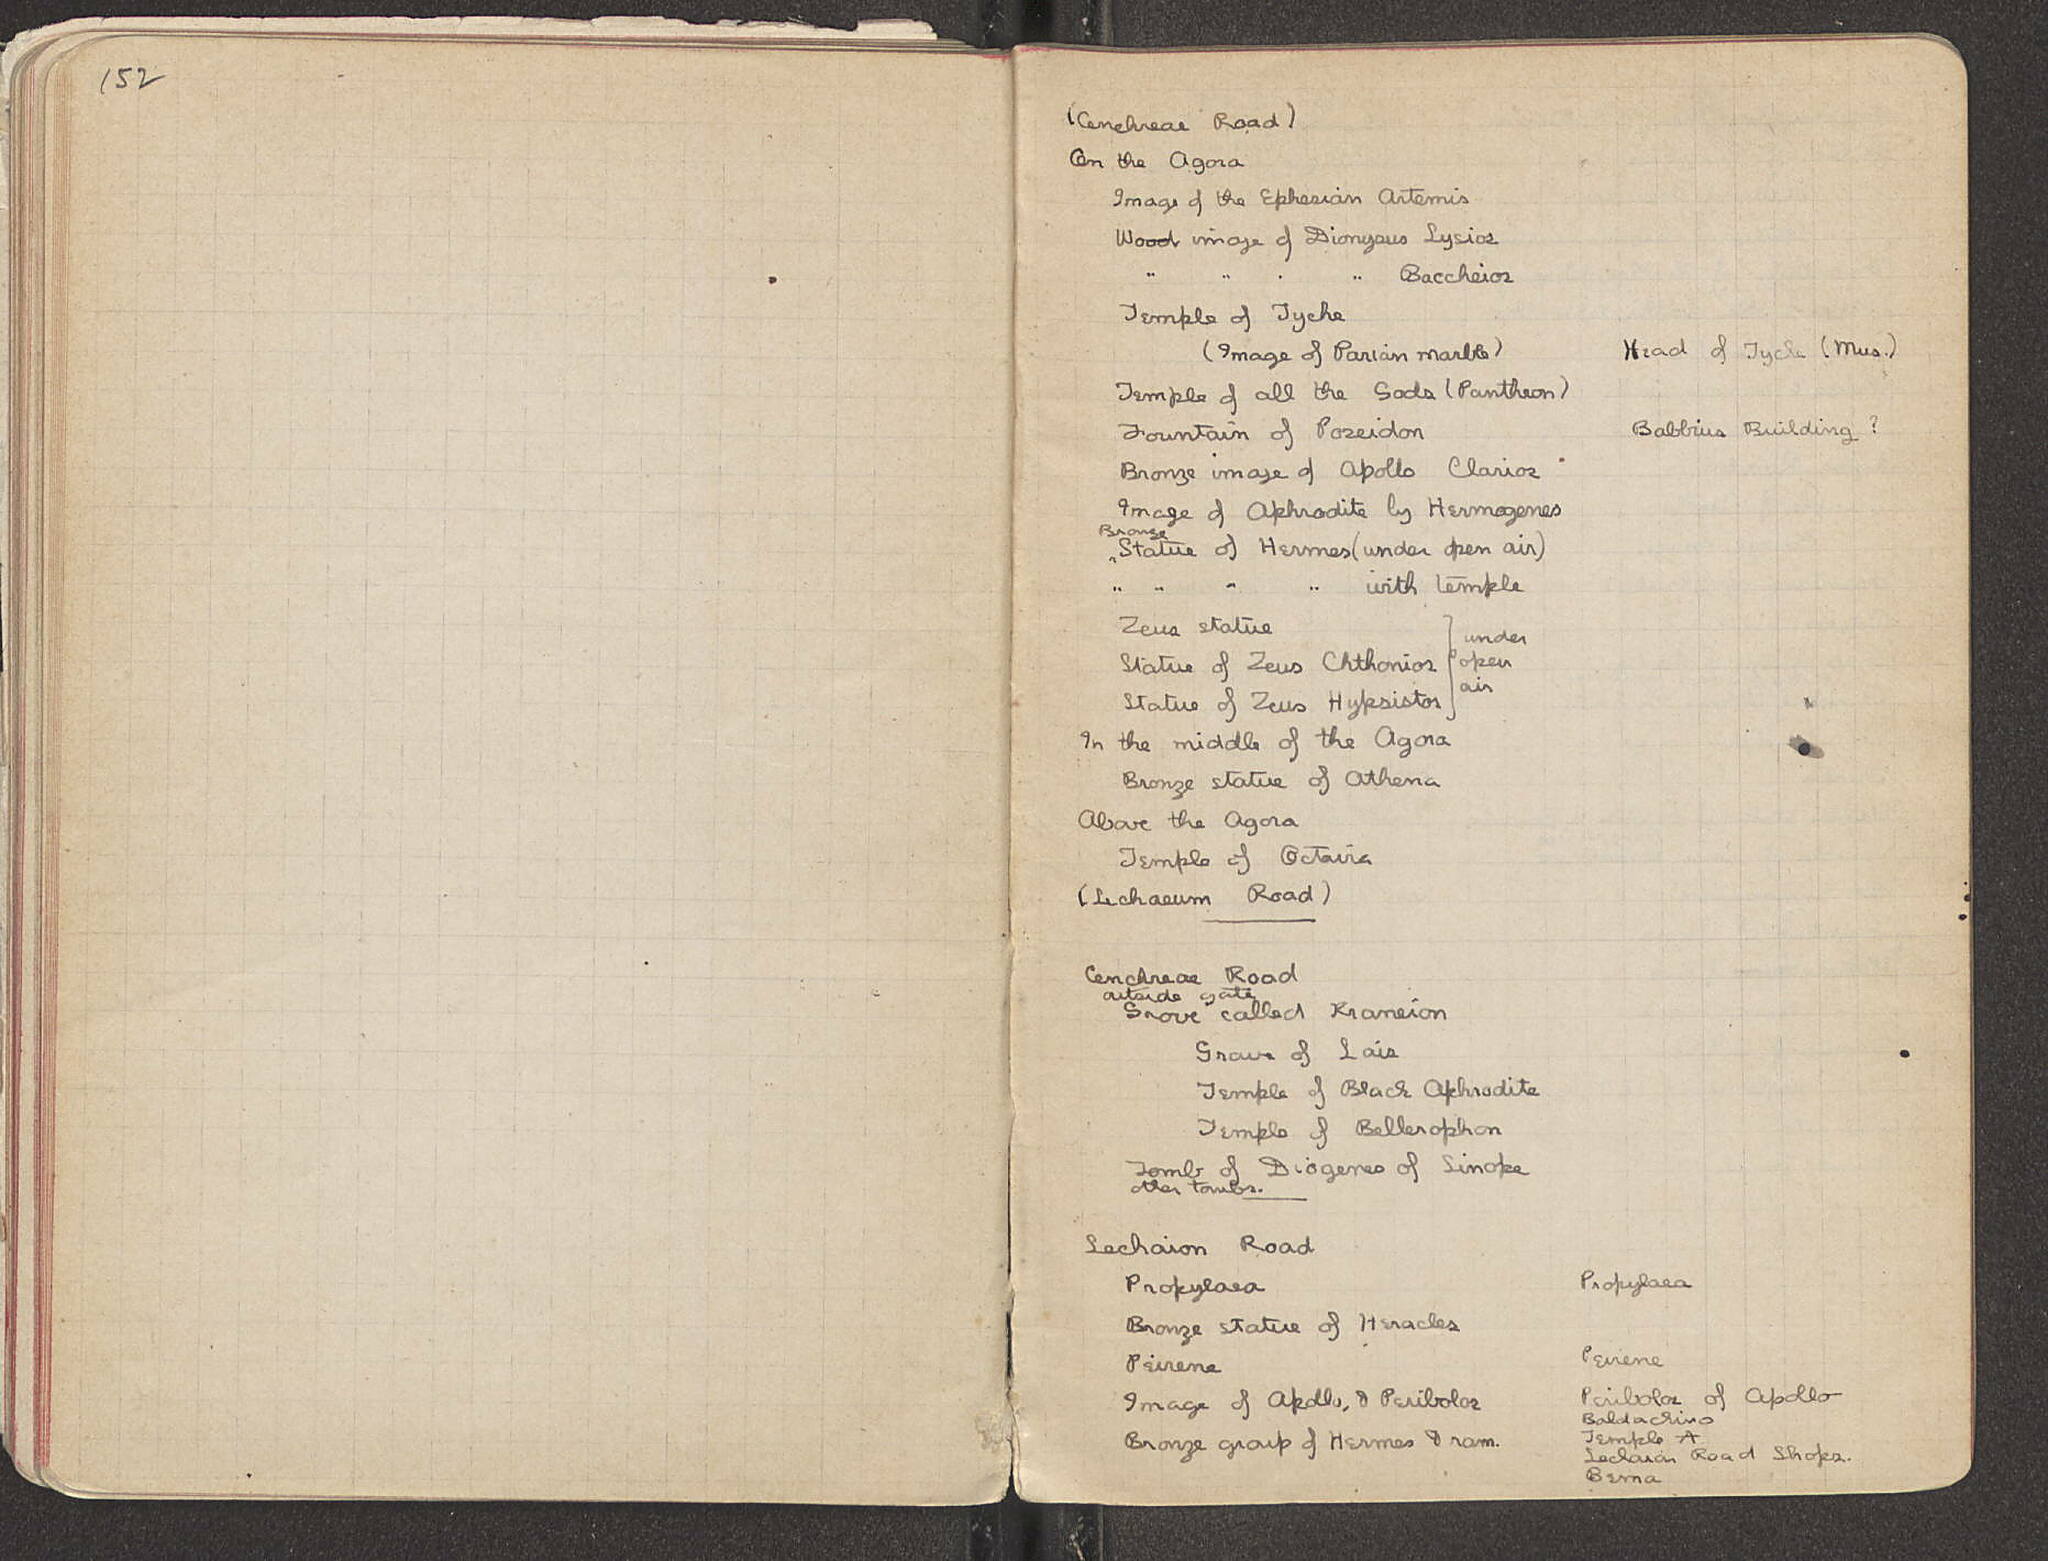 152
(Cenchreae Road)
On the Agora
Image of the Ephesian Artemis
Wood image of Dionysus Lysios
" " " " Baccheios
Temple of Tyche
(Image of Parian marble) Head of Tyche (Mus.)
Temple of all the Gods (Pantheon)
Fountain of Poseidon Babbius Building ?
Bronze image of Apollo Clarios
Image of Aphrodite by Hermogenes
Bronze
Statue of Hermes (under open air)
" " " " with temple
Zeus statue
under
Statue of Zeus Chthonios open
air
Statue of Zeus Hypsistos
In the middle of the Agora
Bronze statue of Athena
Above the Agora
Temple of Octavia
(Lechaeum Road)
Cenchreae Road
outside gate
Grove called Kraneion
Grave of Lais
Temple of Black Aphrodite
Temple of Bellerophon
Tomb of Diogenes of Sinope
other tombs.
Lechaion Road
Propylaea Propylaea
Bronze statue of Heracles
Peirene Peirene
Image of Apollo, & Peribolos Peribolos of Apollo
Baldachino
Bronze group of Hermes & ram. Temple A
Lechaion Road Shops.
Bema